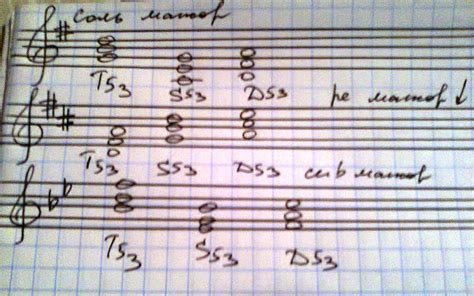 соль мажор
T53 S53 D53
ре мажор ↓
T53 S53 D53
сиb мажор
T53 S53 D53